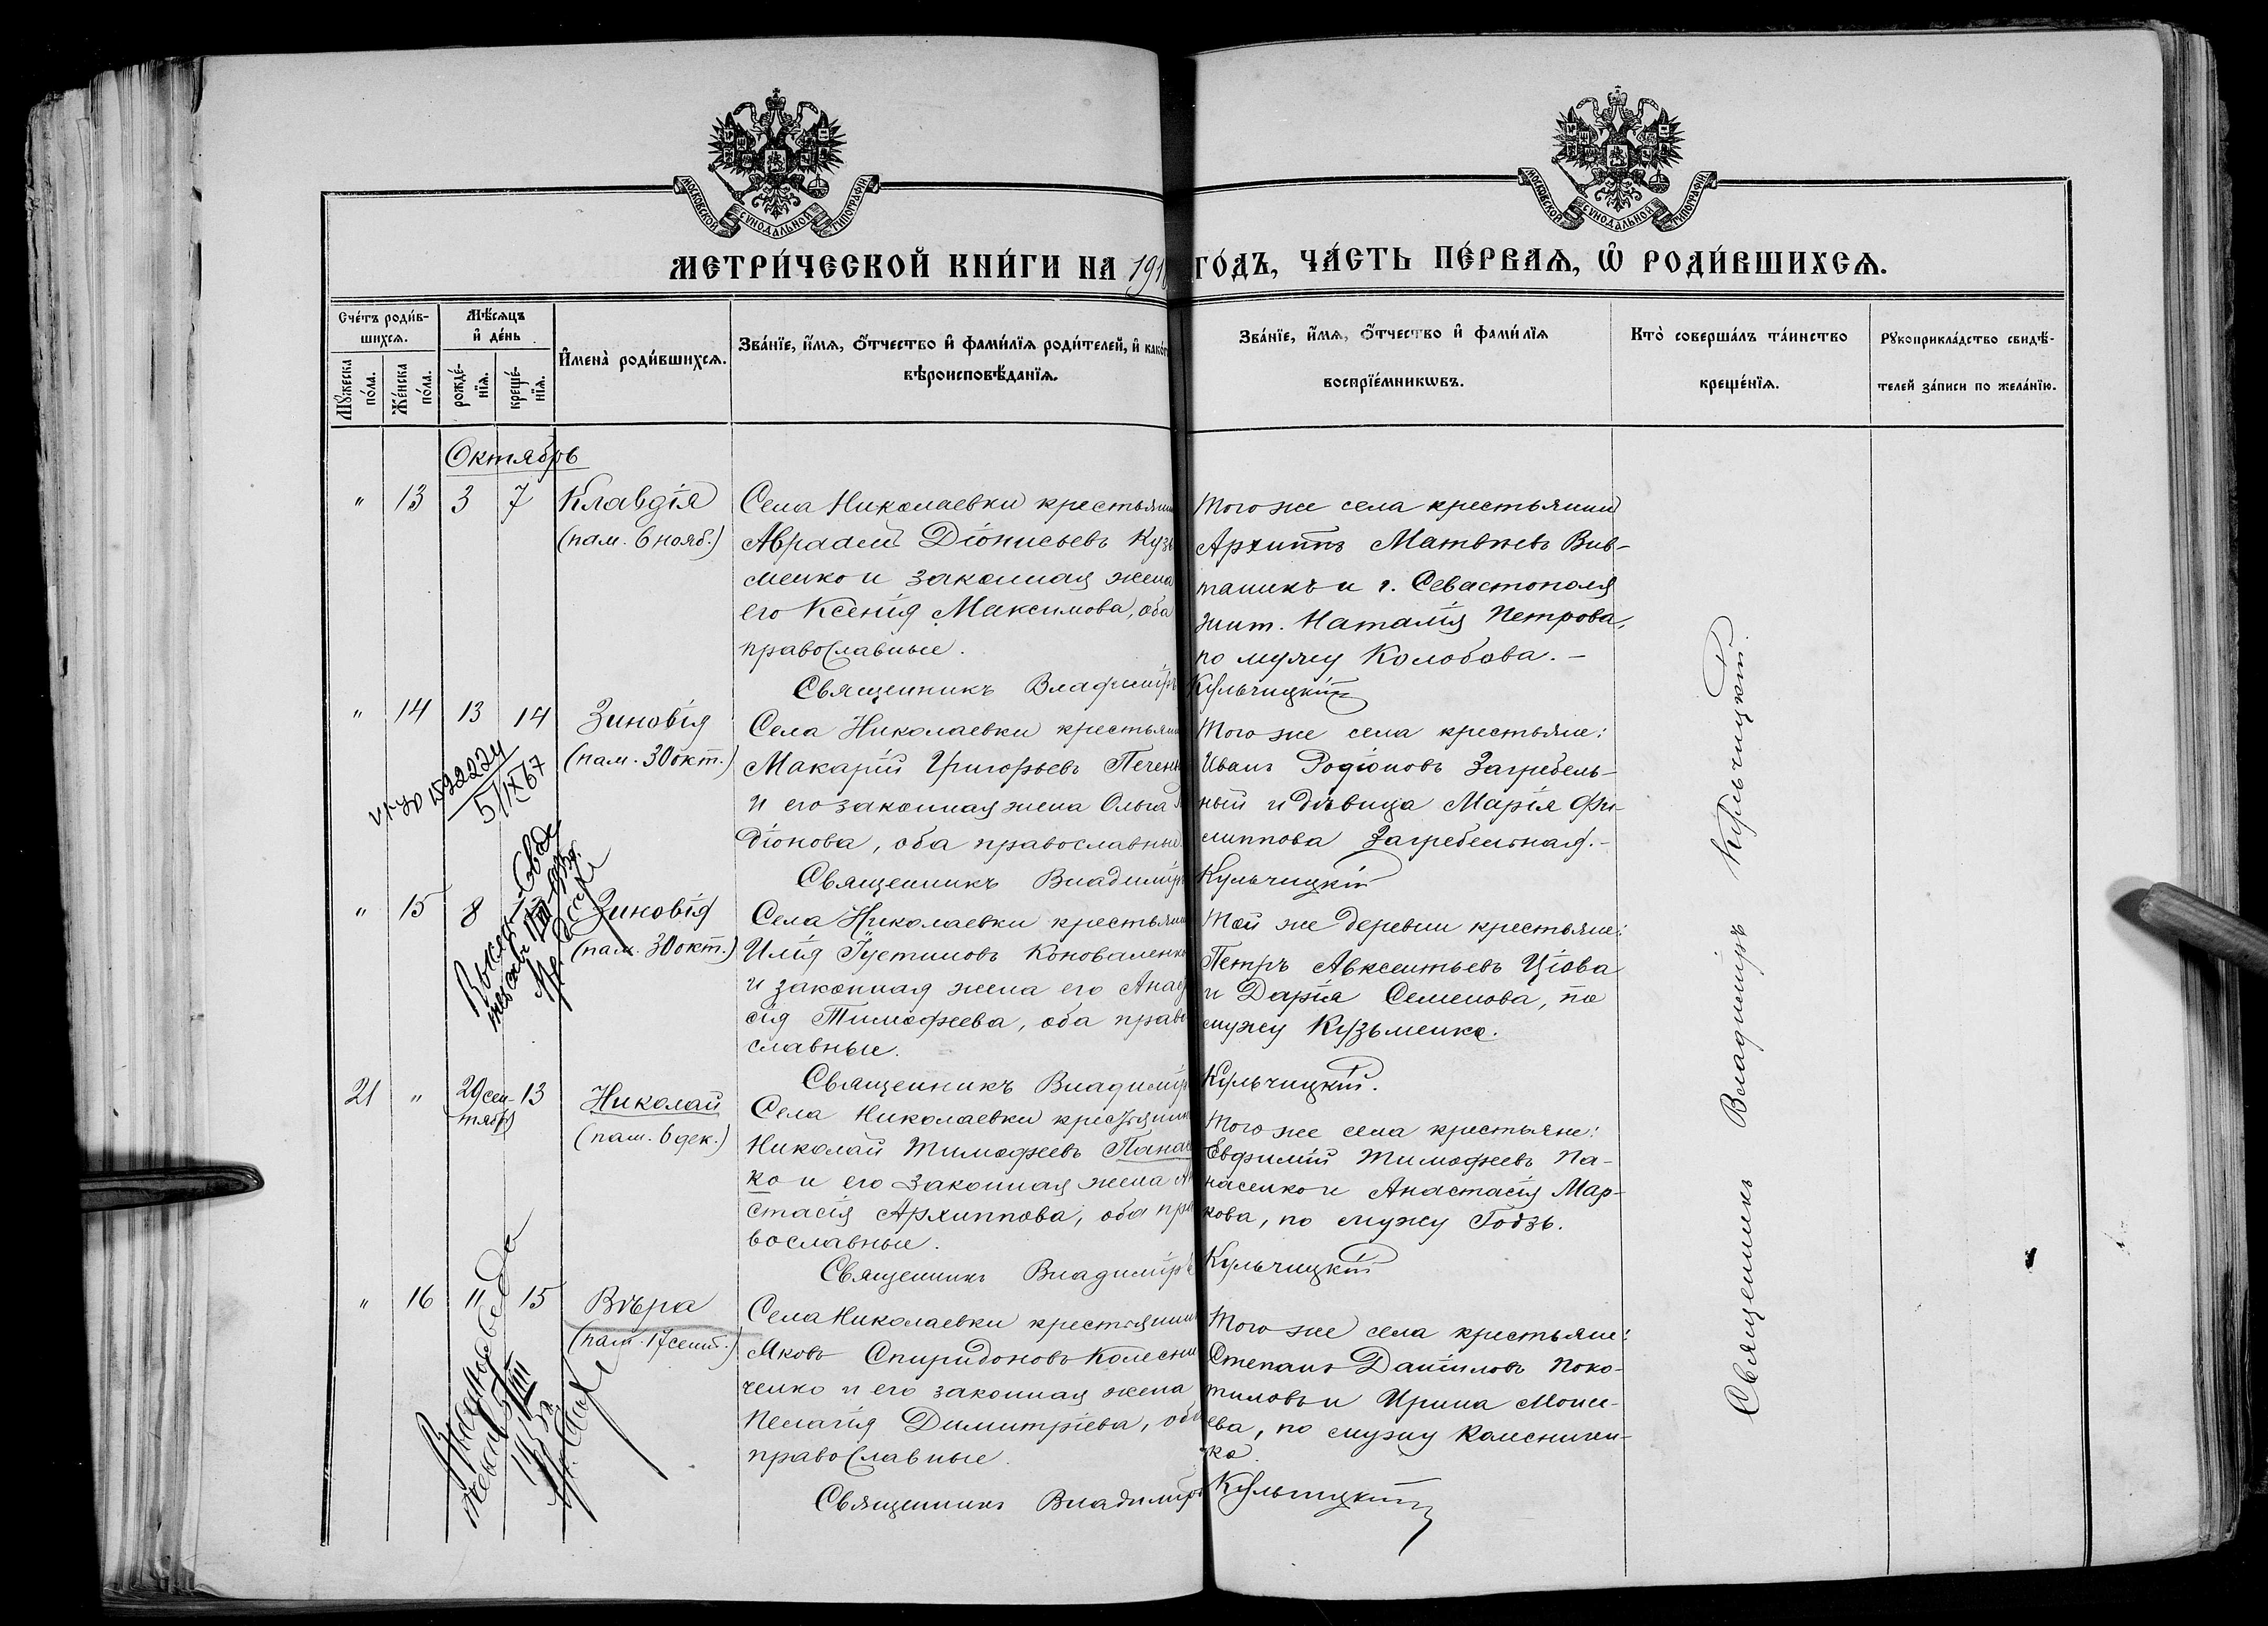 МОСКОВСКОЙ СѴНОДАЛЬНОЙ ТИПОГРАФІИ
МОСКОВСКОЙ СѴНОДАЛЬНОЙ ТИПОГРАФІИ
МЕТРИ́ЧЕСКОЙ КНИ́ГИ НА 191 ГО́ДЪ, ЧА́СТЬ ПЕ́РВАѦ, Ѡ҆ РОДИ́ВШИХСѦ.
Сче́тъ роди́в-
шихсѧ.
Мꙋ́жеска по́ла.
Же́нска по́ла.
Мѣ́сѧцъ и҆ де́нь
рожде́-нїѧ.
креще́-нїѧ.
И҆мена̀ роди́вшихсѧ.
Зва́нїе, и҆́мѧ, ѻ҆́тчество и҆ фами́лїѧ роди́телей, и҆ како́г
вѣроисповѣ́данїѧ.
Зва́нїе, и҆́мѧ, ѻ҆́тчество и҆ фами́лїѧ
воспрїе́мникѡвъ.
Кто̀ соверша́лъ та́инство
креще́нїѧ.
Рꙋкоприкла́дство свидѣ́-
телей за́писи по жела́нїю.
Октябрь
" 13 3 7 Клавдія
(пам. 6 нояб.)
Села Николаевки крестьянин
Авраамъ Діонисьевъ Кузь
менко и законная жена
его Ксенія Максимова, оба
православные.
Того же села крестьянинъ
Архиппъ Матвѣевъ Вив-
таникъ и г. Севастополя
жит. Наталія Петрова,
по мужу Колобова. –
Священникъ Владиміръ Кульчицкій
" 14 13 14 Зиновія
(пам. 30 окт.)
Села Николаевки крестьянин
Макарій Григорьевъ Печен
и его законная жена Ольга
діонова, оба православные.
Того же села крестьяне:
Иванъ Родіоновъ Загребель-
ный и дѣвица Марія Фи-
липпова Загребельная. –
Священникъ Владиміръ Кульчицкій
5/IX 67
" 15 8 Зиновія
(пам. 30 окт.)
Села Николаевки крестьянин
Илія Іустиновъ Коноваленко
и законная жена его Анас
сія Тимофеева, оба право
славные.
Той же деревни крестьяне:
Петръ Авксентьевъ Цюва
и Дарія Семенова, по
мужу Кузьменко.
Священникъ Владиміръ Кульчицкій.
21 " 29 сен-
тября 13 Николай
(пам. 6 дек.)
Села Николаевки крестьянин
Николай Тимофеевъ Панас
ко и его законная жена Ана
стасія Архиппова, оба пра
вославные.
Того же села крестьяне:
Евфимій Тимофеевъ Па-
насенко и Анастасія Мар-
кова, по мужу Годзь.
Священникъ Владиміръ Кульчицкій
" 16 11 15 Вѣра
(пам. 17 сент.)
Села Николаевки крестьянин
Яковъ Спиридоновъ Колесни
ченко и его законная жена
Пелагія Димитріева, оба
православные.
Того же села крестьяне:
Степанъ Даниловъ Поко-
тиловъ и Ирина Моисе-
ева, по мужу Колесничен-
ко.
Священникъ Владиміръ Кульчицкій
Священникъ Владиміръ Кульчицкій.